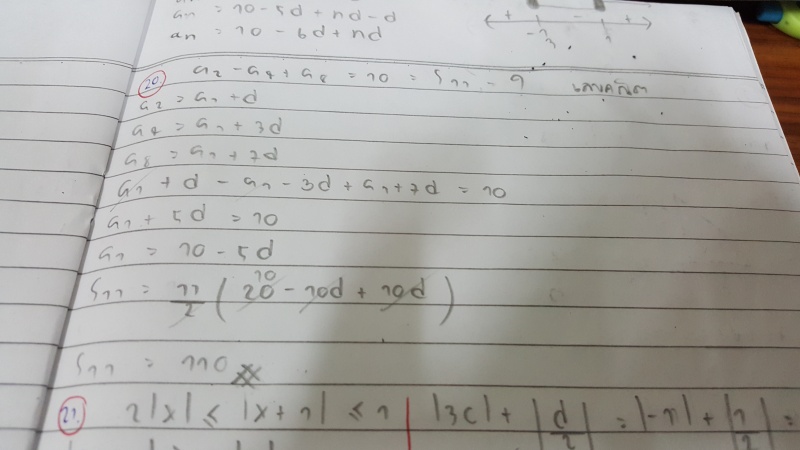 an = 10 - 5d + nd - d
an = 10 - 6d + nd
+ - +
20. a2 - a4 + a8 = 10 = S11 = ?
a2 = a1 + d
a4 = a1 + 3d
a8 = a1 + 7d
a1 + d - a1 - 3d + a1 + 7d = 10
a1 + 5d = 10
a1 = 10 - 5d
10
S11 = 11/2 (20 - 10d + 10d)
S11 = 110
21. 2|x| ≤ |x + 1| ≤ 1 |3c| + |d/2| = |-1| + |1/2| =